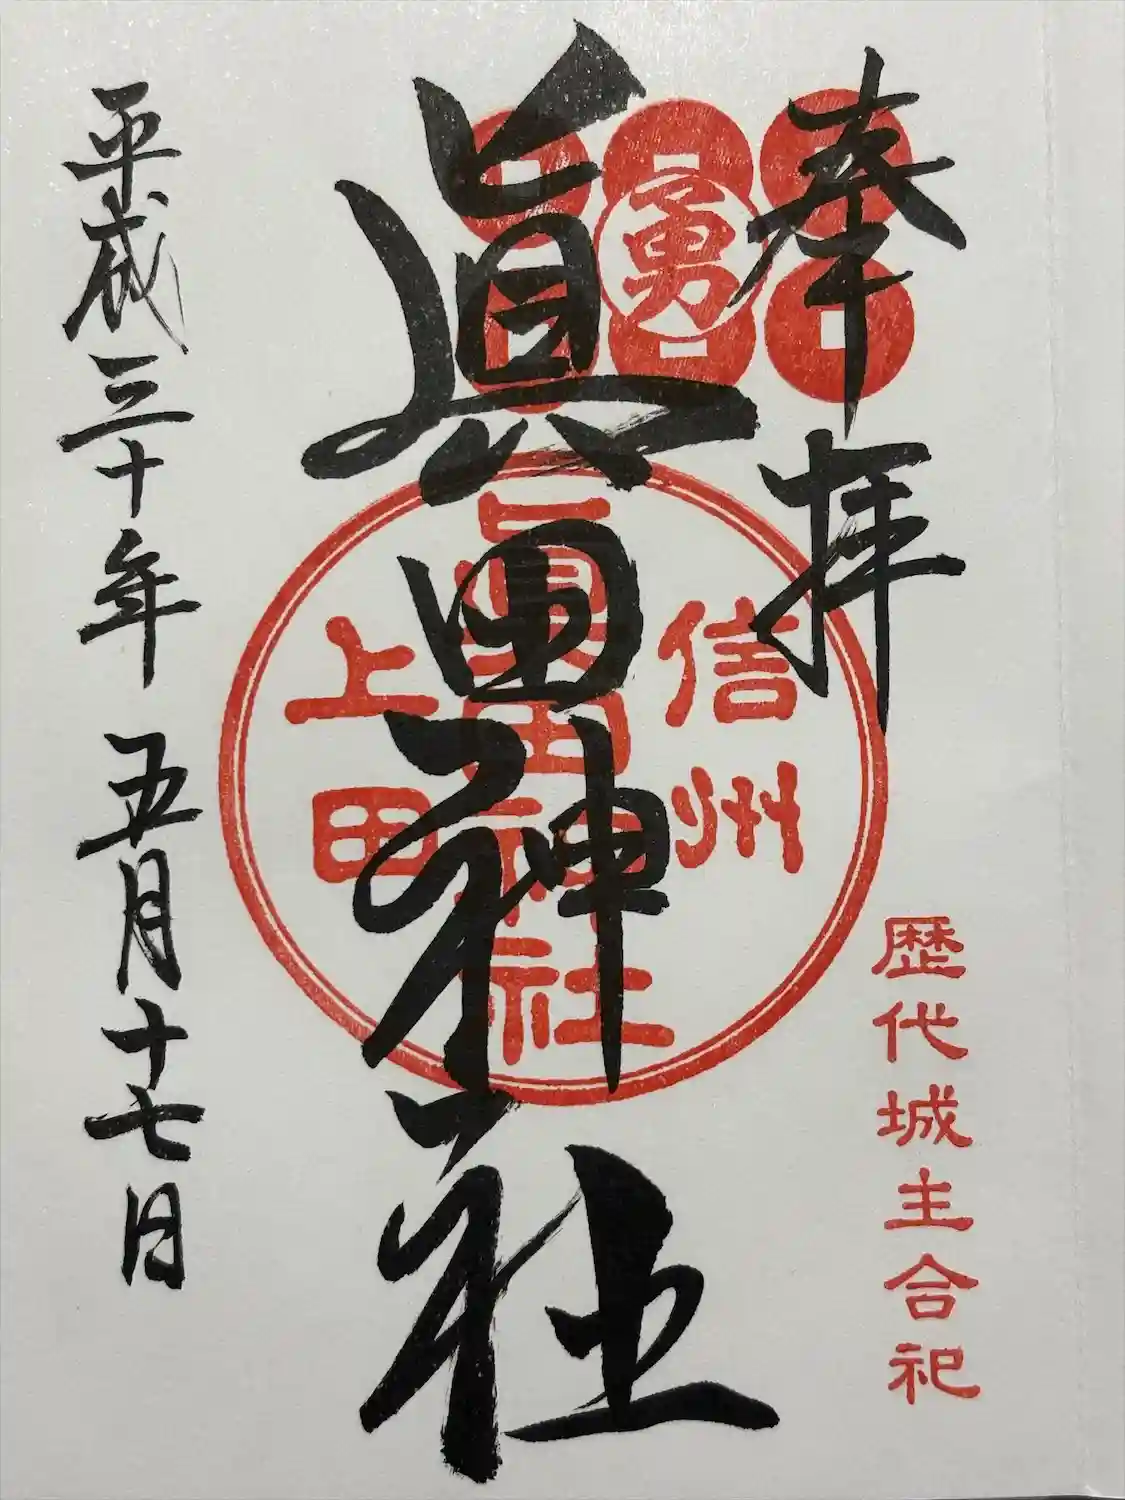 奉拝
歴代城主合祀
勇
眞田神社
信州
眞田神社
上田
平成三十年 五月十七日